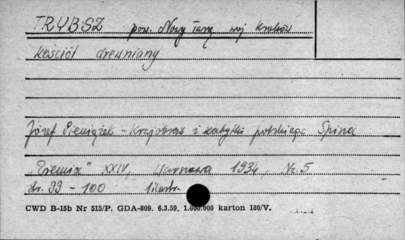 TRYBSZ pow. Nowy Targ woj Kraków
Kościół drewniany
Józef Pieniążek - Krajobraz i zabytki polskiego Spisza
"Ziemia" XXIV, Warszawa 1934, Nr. 5
str. 99 - 100 ilustr.
CWD B-15b Nr 515/P. GDA-809. 6.3.59, 1.000.000 karton 180/V.